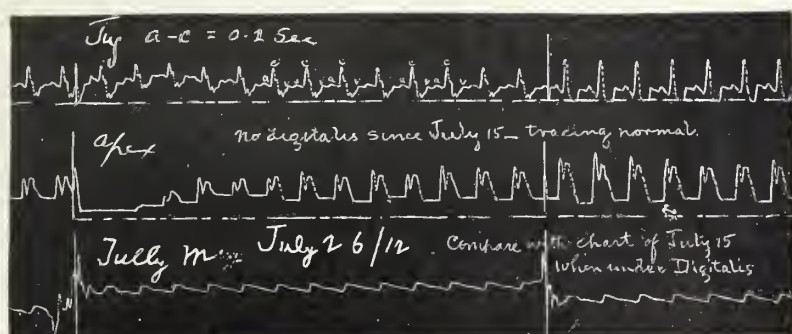 Jug a-c = 0.2 Sec
a c v a c v a c a c v a c v
apex no digitalis since July 15 - tracing normal.
Tully M July 26/12. Compare with chart of July 15
when under Digitalis